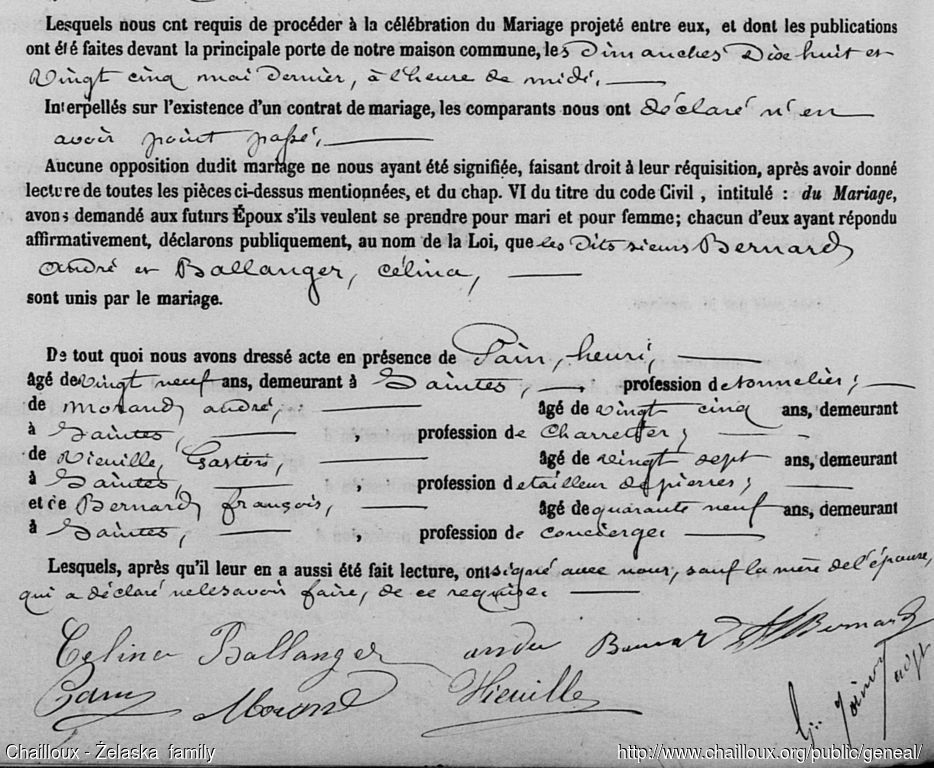 Lesquels nous ont requis de procéder à la célébration du Mariage projeté entre eux, et dont les publications
ont été faites devant la principale porte de notre maison commune, les Dimanches Dix-huit et
Vingt cinq mai dernier, à l'heure de midi,
Interpellés sur l'existence d'un contrat de mariage, les comparants nous ont déclaré n'en
avoir point passé,
Aucune opposition dudit mariage ne nous ayant été signifiée, faisant droit à leur réquisition, après avoir donné
lecture de toutes les pièces ci-dessus mentionnées, et du chap. VI du titre du code Civil, intitulé : du Mariage,
avons demandé aux futurs Époux s'ils veulent se prendre pour mari et pour femme; chacun d'eux ayant répondu
affirmativement, déclarons publiquement, au nom de la Loi, que les dits sieurs Bernard
André et Ballanger, Célina,
sont unis par le mariage.
De tout quoi nous avons dressé acte en présence de Pain, henri,
âgé de vingt neuf ans, demeurant à Saintes, profession de tonnelier;
de Morand, andré, âgé de vingt cinq ans, demeurant
à Saintes, , profession de Charretier;
de Vieuille, Gaston, âgé de vingt sept ans, demeurant
à Saintes, , profession de tailleur de pierres;
et de Bernard, françois, âgé de quarante neuf ans, demeurant
à Saintes, , profession de concierge
Lesquels, après qu'il leur en a aussi été fait lecture, ont signé avec nous, sauf la mère de l'épouse,
qui a déclaré ne le savoir faire, de ce requise.
Celina Ballanger andré Bernard Bernard
Pain Morand Vieuille
adjt
Chailloux - Żelaska family http://www.chailloux.org/public/geneal/